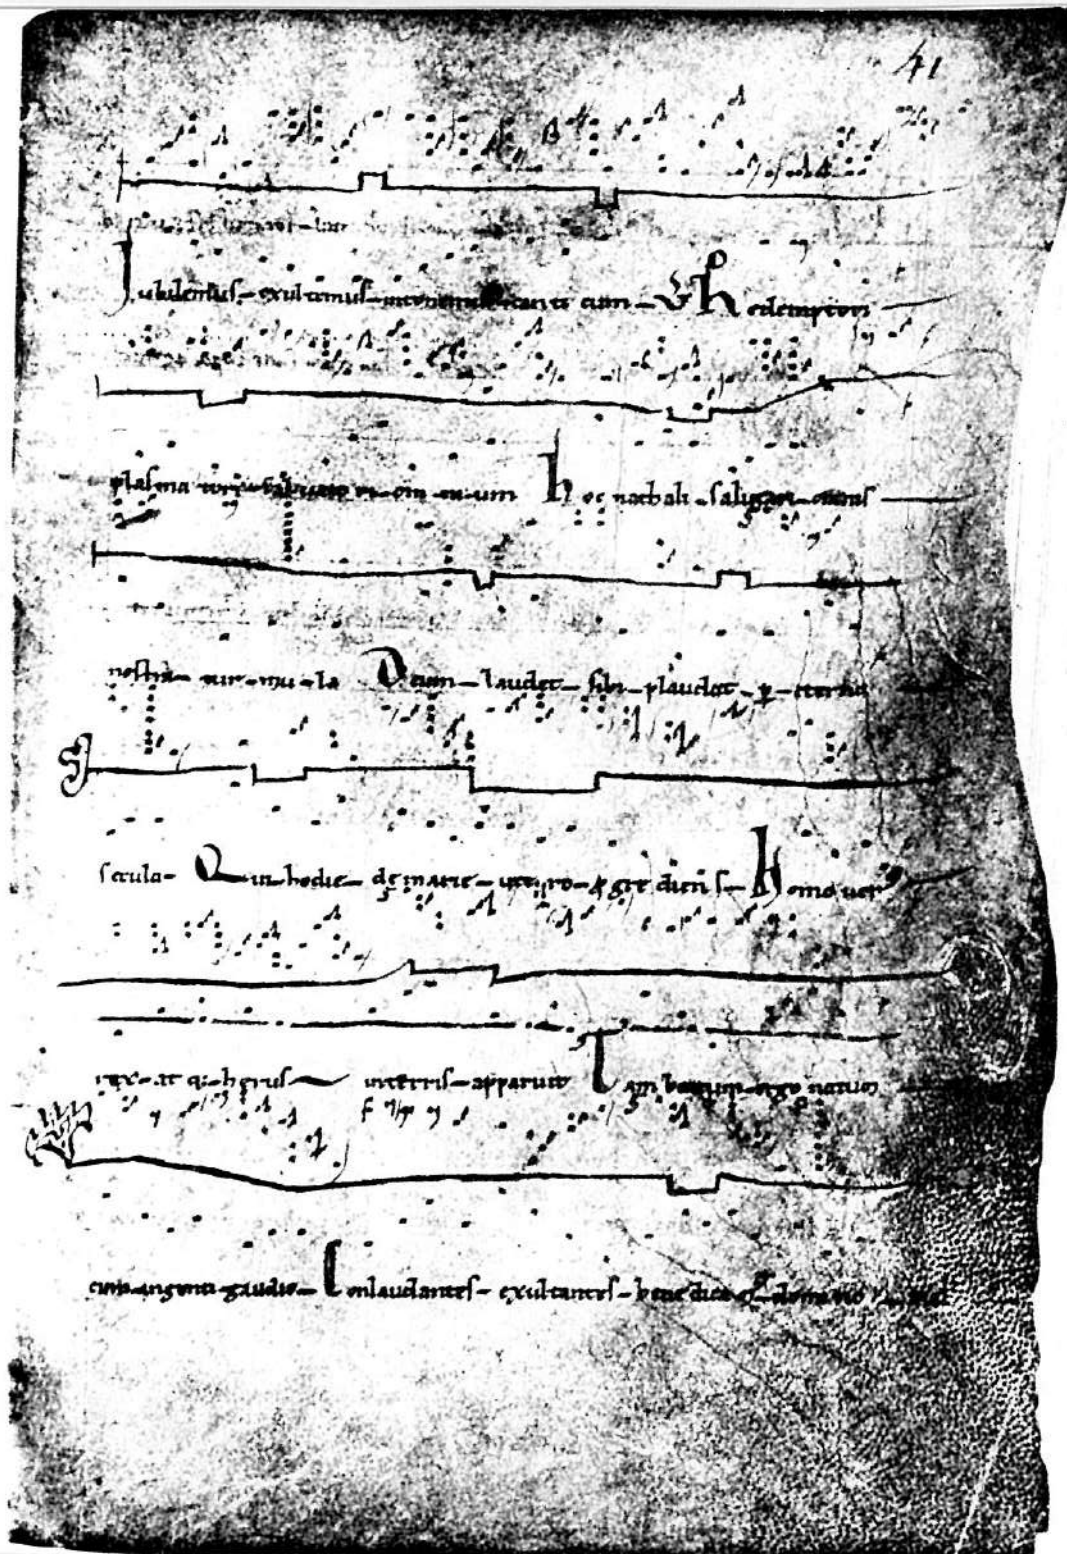 41
Iubilemus - exultemus - intonemus canticum - R edemptori
plasma tori salvatori om ni um hoc nathali - salutari - omnis
nostra - tur - mu - la Deum - laudet - sibi - plaudat - p - eterna
secula - Qui - hodie - de marie - utero - progre diens - homo ver
rex - at q; herus in terris - apparuit Tam beatum - ergo natum
cum - ingenti - gaudio - Conlaudantes - exultantes - benedica domino